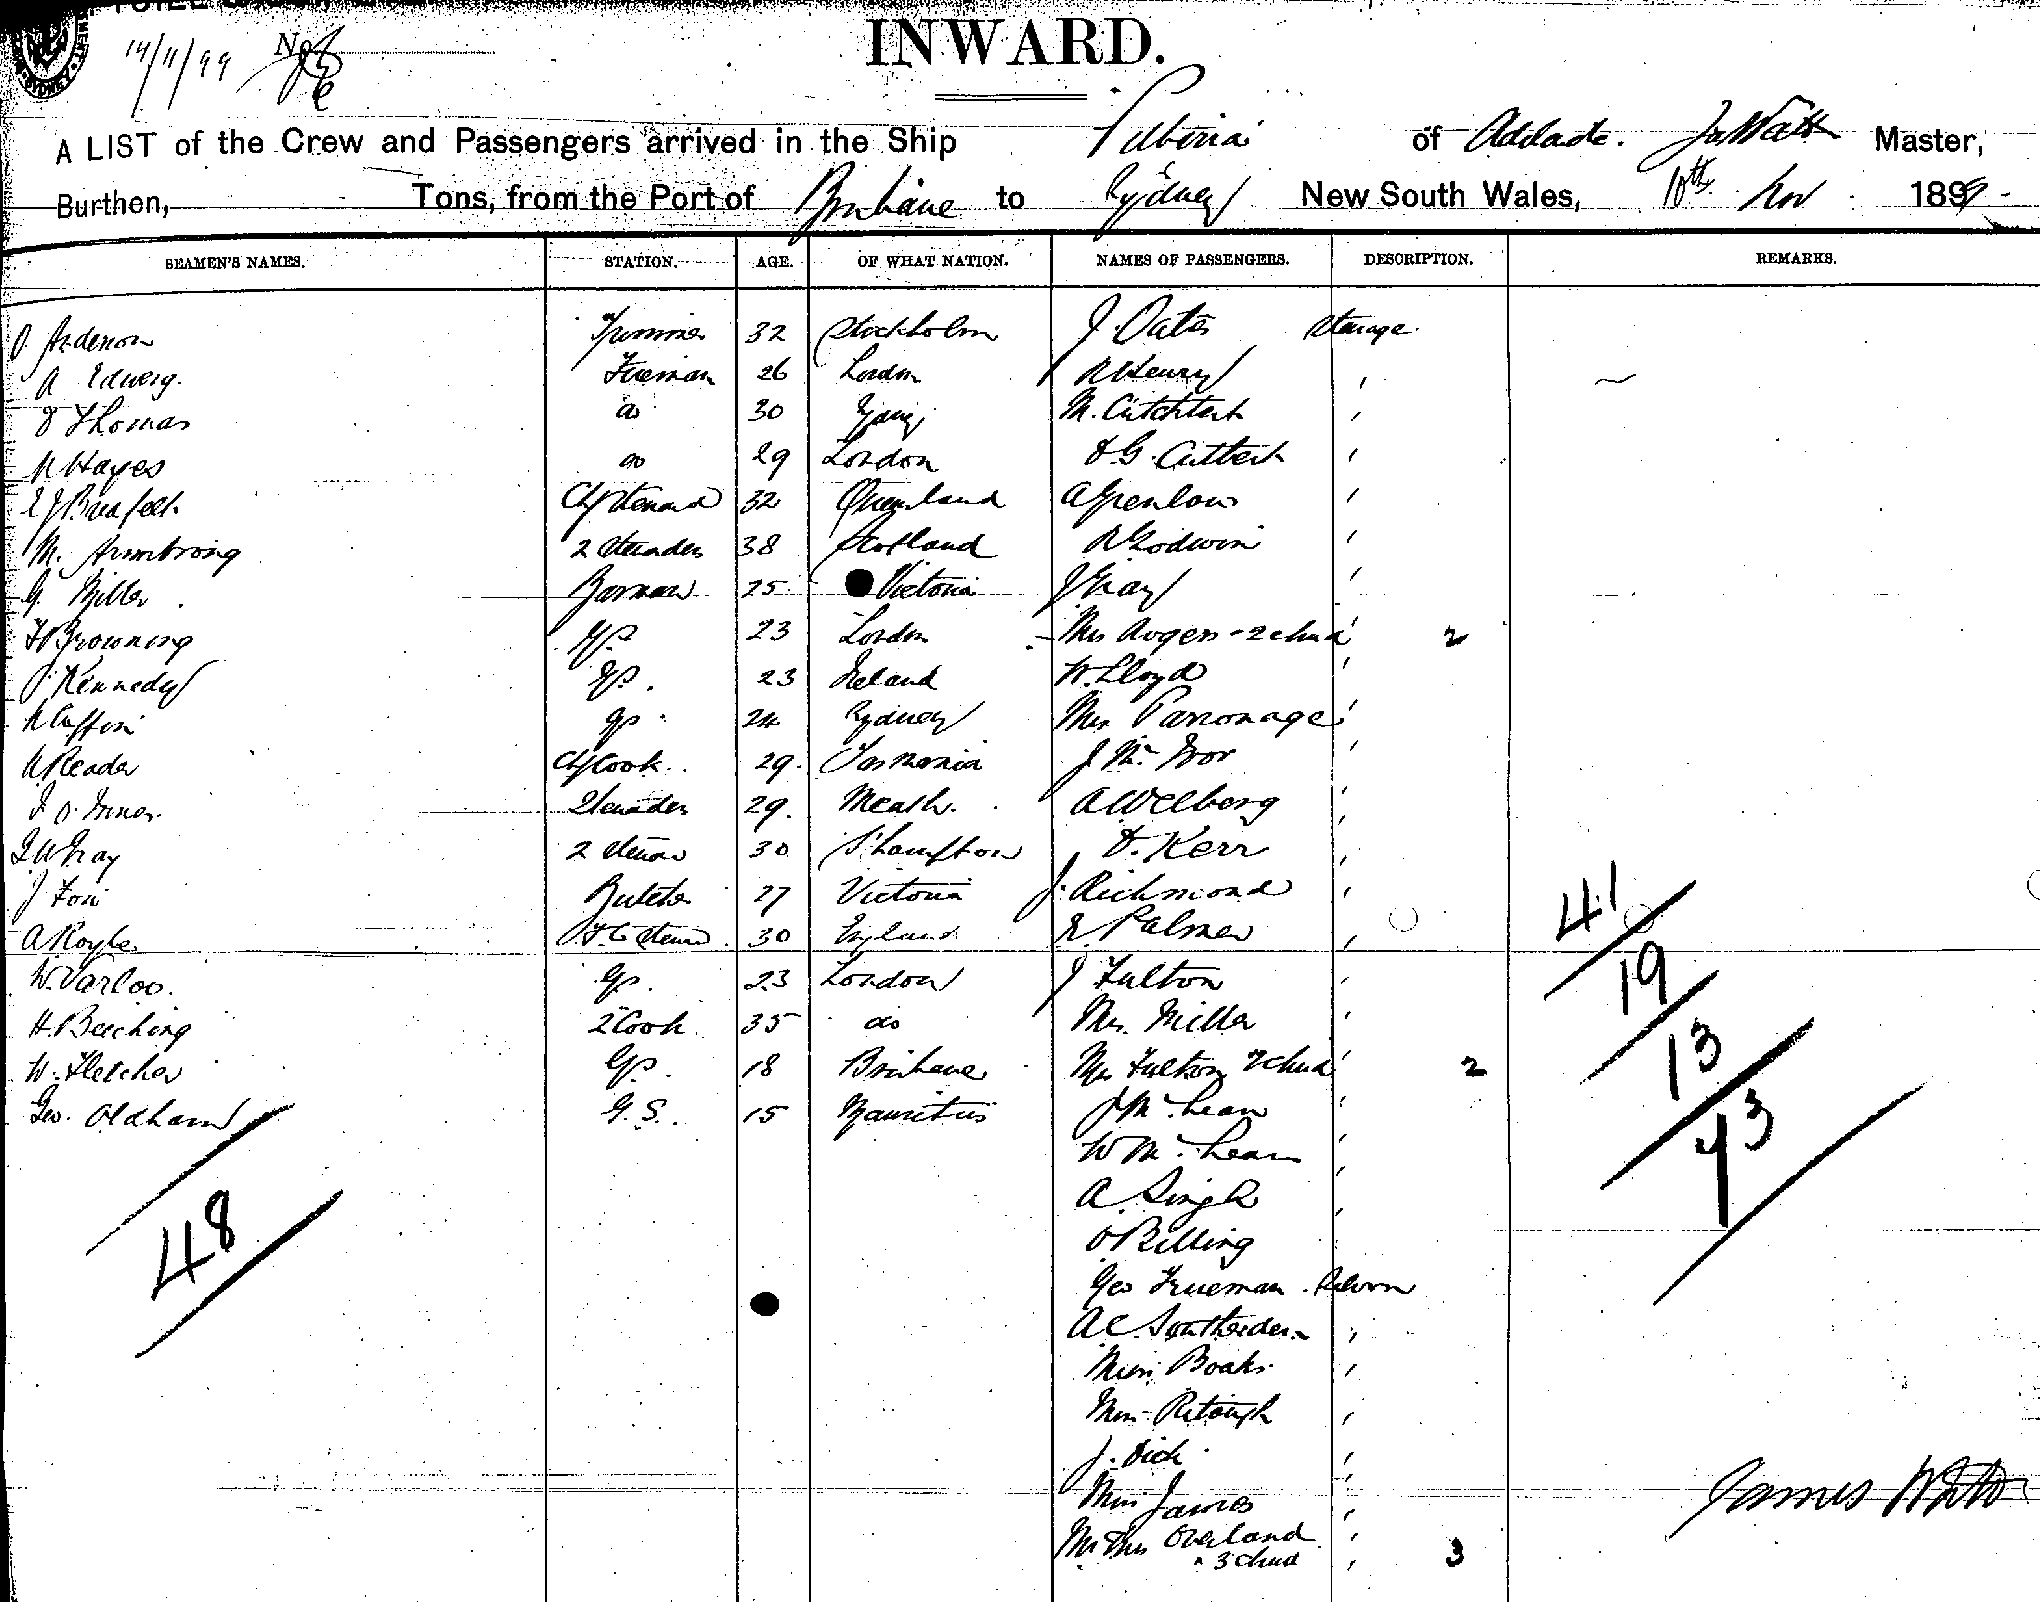 14/11/99 No
INWARD.
A LIST of the Crew and Passengers arrived in the Ship Pilbarra of Adelaide. Jas Watt Master,
Burthen, Tons, from the Port of Brisbane to Sydney New South Wales, 10th Nov 1899
SEAMEN'S NAMES. STATION. AGE. OF WHAT NATION. NAMES OF PASSENGERS. DESCRIPTION. REMARKS.
O Anderson Trimmer 32 Stockholm J. Oates Steerage
A Fireman 26 London R Henry "
T Thomas do 30 M. Cuthbert "
N Hayes do 29 London D G. Cutbert "
E J Chf Steward 32 Queensland A "
M. Armstrong 2 Stewardess 38 Scotland R Godwin "
G. Miller Barman 25 Victoria J Gray "
H Browning GS 23 London Mrs Rogers - 2 child " 2
J Kennedy GS. 23 Ireland W. Lloyd "
GS 24 Sydney Mrs Parsonage "
A Reader Chf Cook 29. Tasmania J. Mc Ivor "
Stewardess 29. Meath. A Welberg "
J W Gray 2 Steward 30 S'hampton D. Kerr "
J Butcher 27 Victoria J. Richmond "
A Royle Steward 30 England E. Palmer "
W. Varloo. GS. 23 London J Fulton "
H. Beeching 2 Cook 35 do Mrs. Miller "
W. Fletcher GS. 18 Brisbane Mrs Fulton 2 child " 2
Geo. Oldham G.S. 15 Mauritius J Mc Lean "
W Mc Lean "
A. Singh "
O Billing
Geo Trueman. Saloon
A C "
Miss Boaks "
Miss "
J. Dick "
Miss James "
Mr & Mrs Overland "
" 3 child " 3
48
41
19
13
73
James Watt